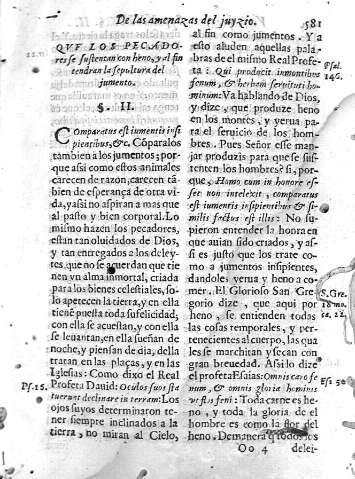 De las amenazas del juyzio. 581
QVE LOS PECADO-
res se sustentan con heno, y al fin
tendran la sepoltura del
jumento.
§. II.
Comparatus est iumentis insi
pientibus, &c. Cóparalos
tambien a los jumentos; por-
que assi como estos animales
carecen de razon, carecen tá-
bien de esperança de otra vi-
da, y assi no aspiran a mas que
al pasto y bien corporal. Lo
mismo hazen los pecadores,
estan tan oluidados de Dios,
y tan entregados a los deley-
tes que no se acuerdan que tie
nen vn alma inmortal, criada
para los bienes celestiales, so-
lo apetecen la tierra, y en ella
tiené puesta toda su felicidad;
con ella se acuestan, y con ella
se leuantan, en ella sueñan de
noche, y piensan de dia, della
tratan en las plaças, y en las
Iglesias: Como dixo el Real
Psf. 15. Profeta Dauid: Oculos suos sta
tuerunt declinare in terram: Los
ojos suyos determinaron te-
ner siempre inclinados a la
tierra, no miran al Cielo,
al fin como jumentos. Y a
esto aluden aquellas pala-
bras de el mismo Real Profe-
ta: Qui producit in montibus
Psal.
146.
fenum, & herbam seruituti ho-
minum: Va hablando de Dios,
y dize, que produze heno
en los montes, y yerua pa-
ra el seruicio de los hom-
bres. Pues Señor esse man-
jar produzis para que se sus-
tenten los hombres? si, por-
que, Homo cum in honore es-
set non intelexit, comparatus
est iumentis insipientibus & si-
milis factus est illis: No su-
pieron entender la honra en
que auian sido criados, y as-
si es justo que los trate co-
mo a jumentos insipientes,
dandoles yerua y heno a co-
mer. El Glorioso San Gre
S. Gre.
gorio dize, que aqui por
heno, se entienden todas
las cosas temporales, y per-
tenecientes al cuerpo, las qua
les se marchitan y secan con
gran breuedad. Assi lo dize
el profeta Esaias: Omnis caro fe
num, & omnis gloria hominis
Esa. 50
vt flos feni: Toda carne es he-
no, y toda la gloria de el
hombre es como la flor del
heno. De manera q todos los
Oo 4 delei-